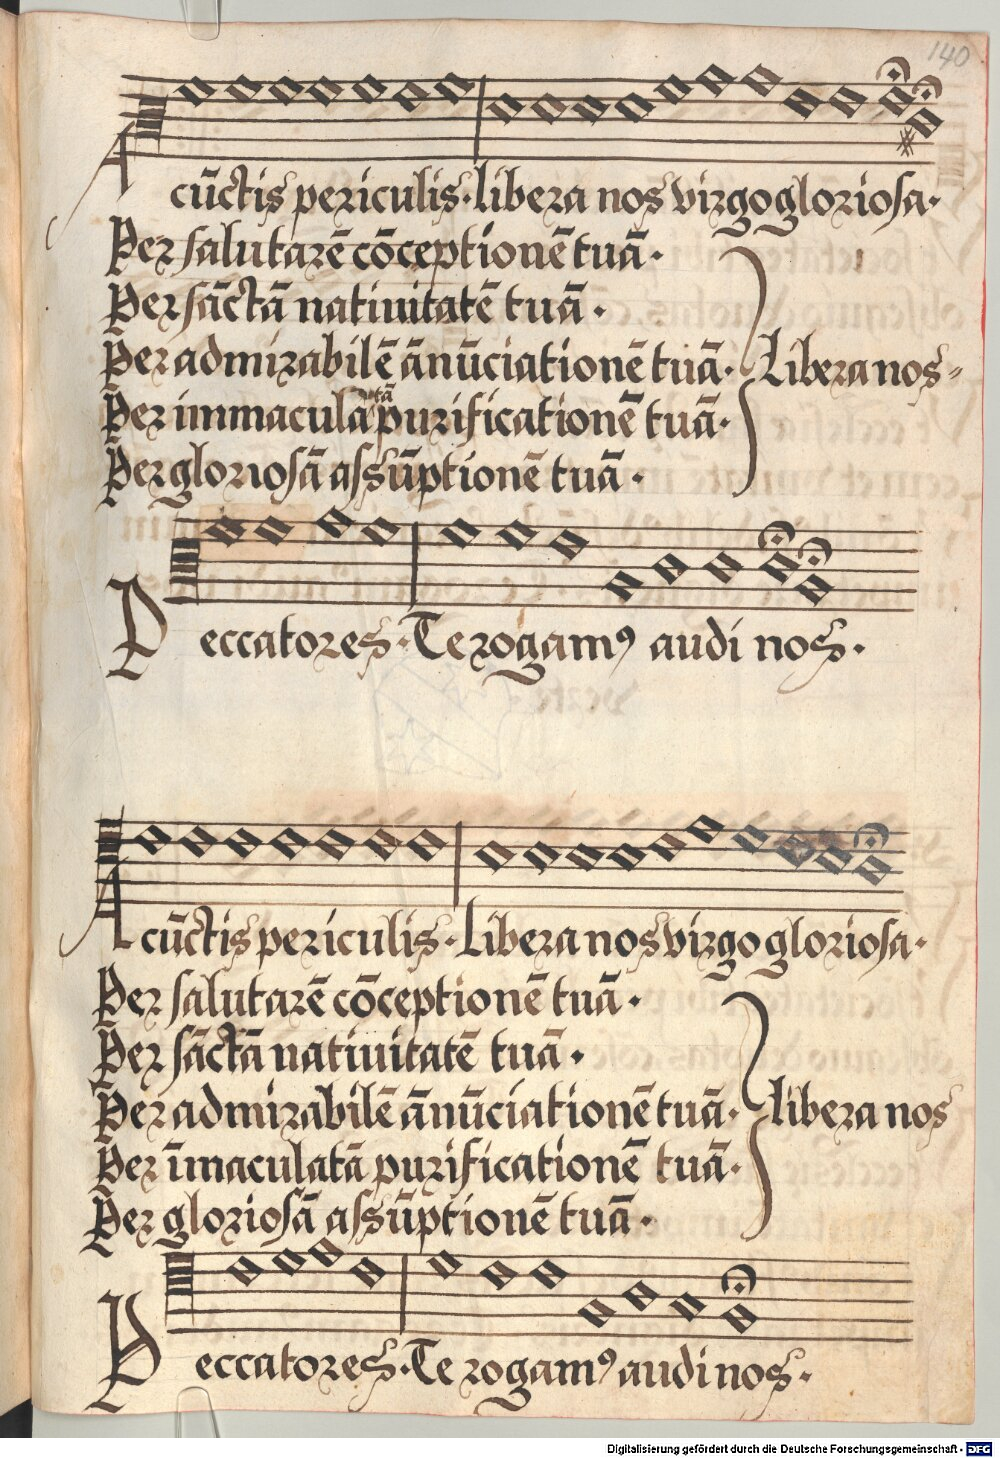 140
A cūctis periculis. libera nos virgo gloriosa.
Per salutarē cōceptionē tuā.
Per sāctā natiuitatē tuā.
Per admirabilē ānūciationē tuā. Libera nos
Per immaculatā purificationē tuā.
Per gloriosā assūptionē tuā.
Peccatores. Te rogamꝰ audi nos.
A cūctis periculis. Libera nos virgo gloriosa.
Per salutarē cōceptionē tuā.
Per sāctā natiuitatē tuā.
Per admirabilē ānūciationē tuā. libera nos
Per īmaculatā purificationē tuā.
Per gloriosā assūptionē tuā.
Peccatores. Te rogamꝰ audi nos.
Digitalisierung gefördert durch die Deutsche Forschungsgemeinschaft - DFG